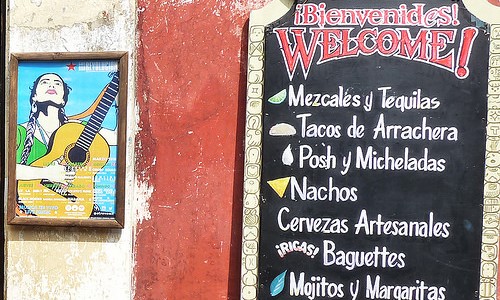 ¡Bienvenid@s!
WELCOME!
Mezcales y Tequilas
Tacos de Arrachera
Posh y Micheladas
Nachos
Cervezas Artesanales
¡RICAS! Baguettes
Mojitos y Margaritas